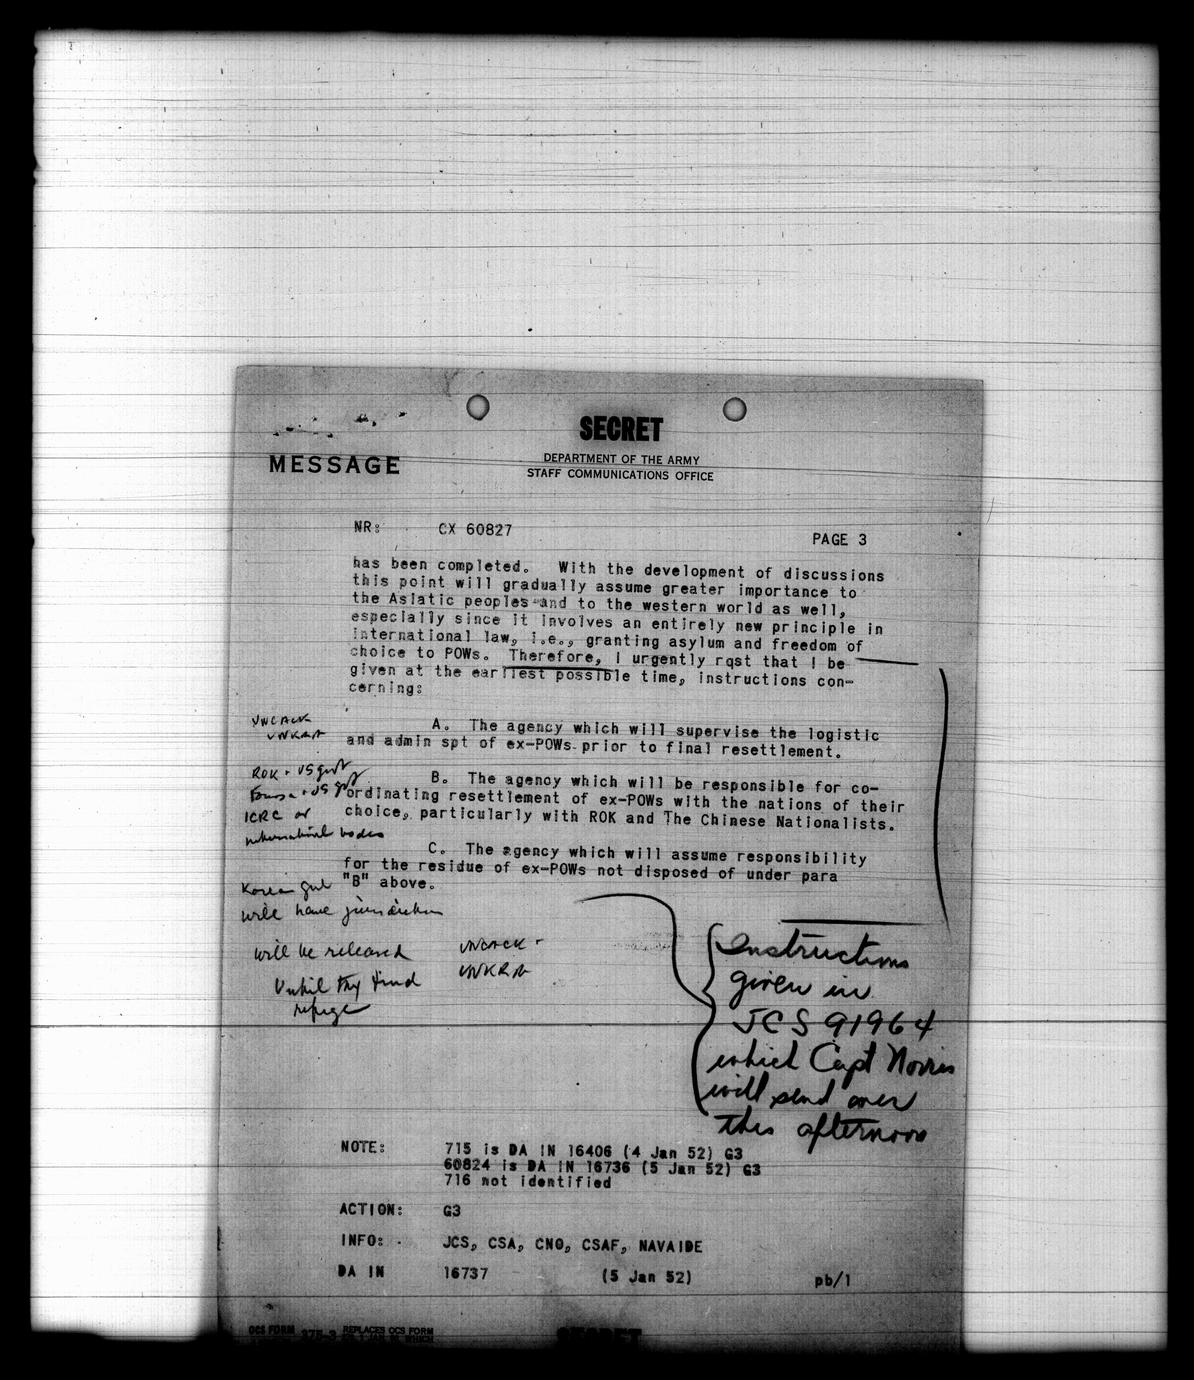 SECRET
MESSAGE
DEPARTMENT OF THE ARMY
STAFF COMMUNICATIONS OFFICE
NR: CX 60827
PAGE 3
has been completed. With the development of discussions
this point will gradually assume greater importance to
the Asiatic peoples and to the western world as well,
especially since it involves an entirely new principle in
international law, i.e., granting asylum and freedom of
choice to POWs. Therefore, I urgently rqst that I be
given at the earliest possible time, instructions con-
cerning:
UNCACK
UNKRA
A. The agency which will supervise the logistic
and admin spt of ex-POWs prior to final resettlement.
ROK - US govt
Formosa - US govt
ICRC or
international bodies
B. The agency which will be responsible for co-
ordinating resettlement of ex-POWs with the nations of their
choice, particularly with ROK and The Chinese Nationalists.
C. The agency which will assume responsibility
for the residue of ex-POWs not disposed of under para
"B" above.
Korean
will have jurisdiction
will be released
Until they find
refuge
UNCACK -
UNKRA
Instructions
given in
JCS 91964
which Capt Norris
will send over
this afternoon
NOTE: 715 is DA IN 16406 (4 Jan 52) G3
60824 is DA IN 16736 (5 Jan 52) G3
716 not identified
ACTION: G3
INFO: JCS, CSA, CNO, CSAF, NAVAIDE
DA IN 16737 (5 Jan 52) pb/1
OCS FORM 375-3 REPLACES OCS FORM
SECRET